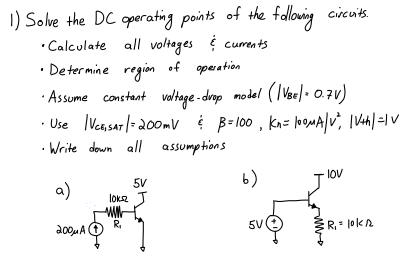 1) Solve the DC operating points of the following circuits.
• Calculate all voltages & currents
• Determine region of operation
• Assume constant voltage-drop model (|VBE| = 0.7V)
• Use |VCE,SAT| = 200mV & β=100, Kn= 100μA/V², |Vth|=1V
• Write down all assumptions
a)
5V
10kΩ
R₁
200μA
b)
10V
5V
R₁ = 10kΩ